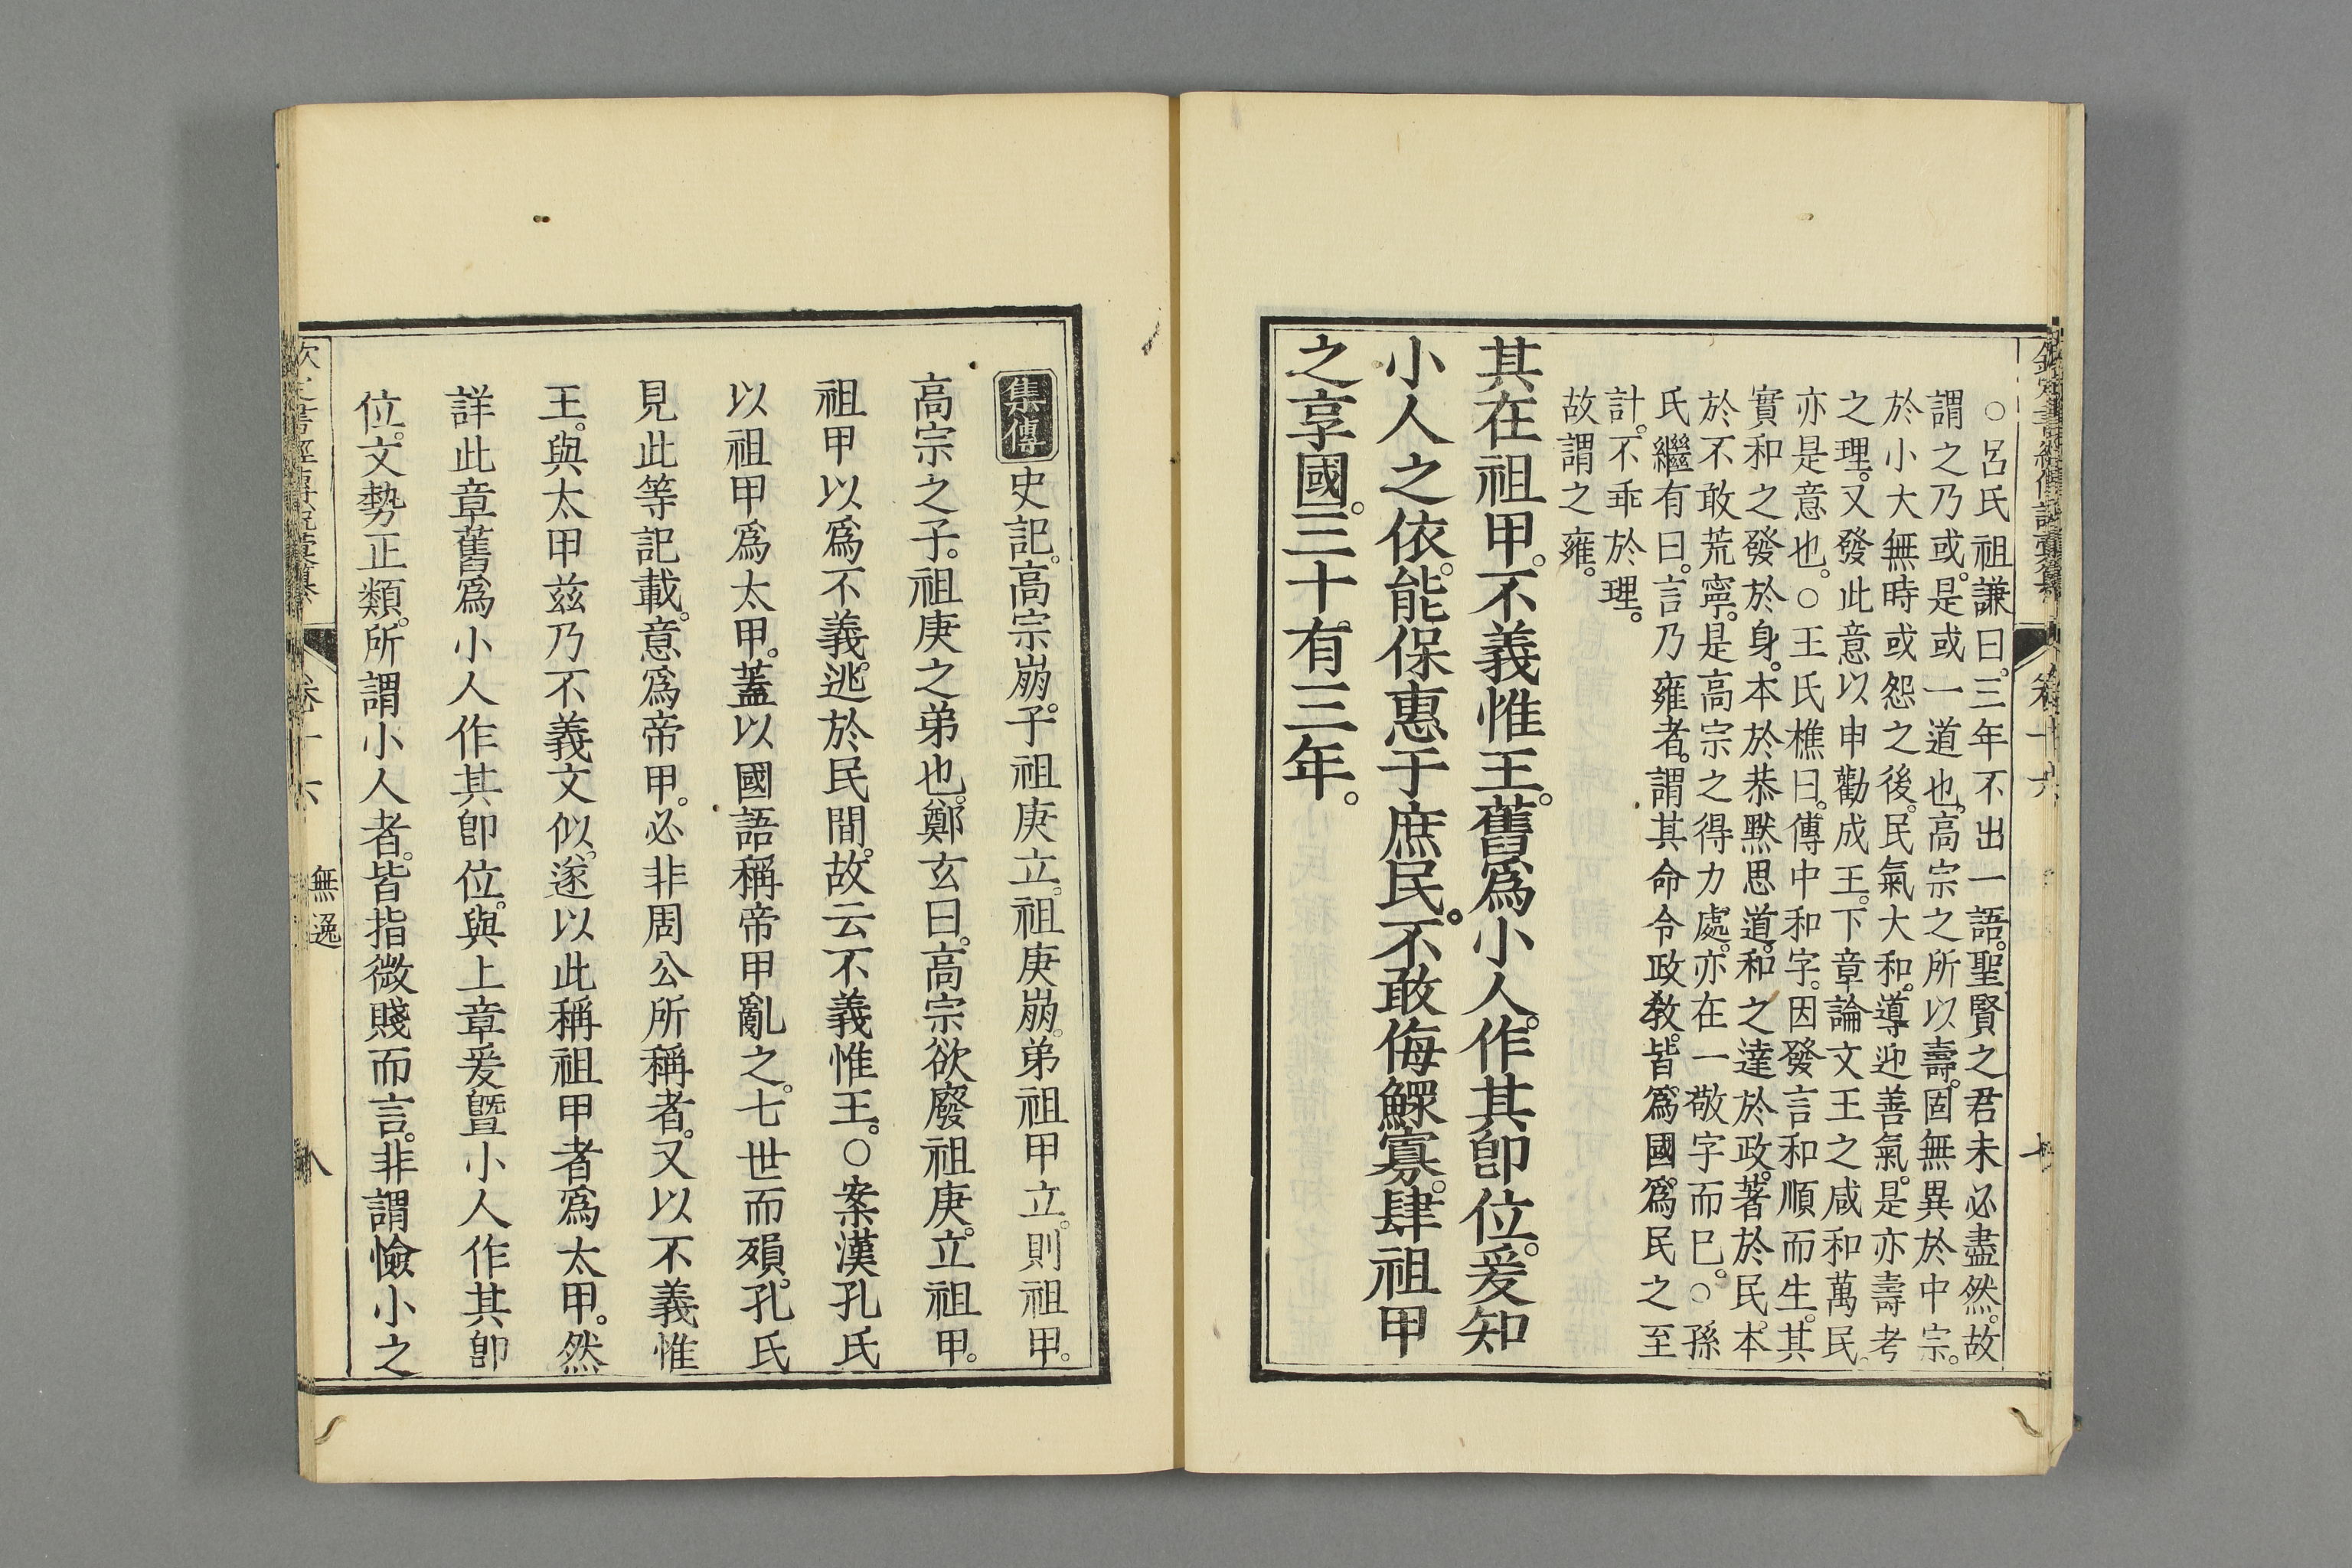 ○呂氏祖謙曰。三年不出一語。聖賢之君未必盡然。故
謂之乃或。是或一道也。高宗之所以壽。固無異於中宗。
於小大無時或怨之後。民氣大和。導迎善氣。是亦壽考
之理。又發此意以申勸成王。下章論文王之咸和萬民。
亦是意也。○王氏樵曰。傳中和字。因發言和順而生。其
實和之發於身。本於恭默思道。和之達於政。著於民。本
於不敢荒寧。是高宗之得力處。亦在一敬字而巳。○孫
氏繼有曰。言乃雍者。謂其命令政敎。皆爲國。爲民之至
計。不乖於理。
故謂之雍。
其在祖甲。不義惟王。舊爲小人。作其卽位。爰知
小人之依。能保惠于庶民。不敢侮鰥寡。肆祖甲
之享國。三十有三年。
卷十六
七
集傳史記。高宗崩。子祖庚立。祖庚崩。弟祖甲立。則祖甲。
高宗之子。祖庚之弟也。鄭玄曰。高宗欲廢祖庚。立祖甲。
祖甲以爲不義。逃於民間。故云不義惟王。○案漢孔氏
以祖甲爲太甲。蓋以國語稱帝甲亂之。七世而殞。孔氏
見此等記載。意爲帝甲。必非周公所稱者。又以不義惟
王。與太甲兹乃不義文似。遂以此稱祖甲者爲太甲。然
詳此章舊爲小人作其卽位。與上章爰曁小人作其卽
位。文勢正類。所謂小人者。皆指微賤而言。非謂憸小之
無逸
八